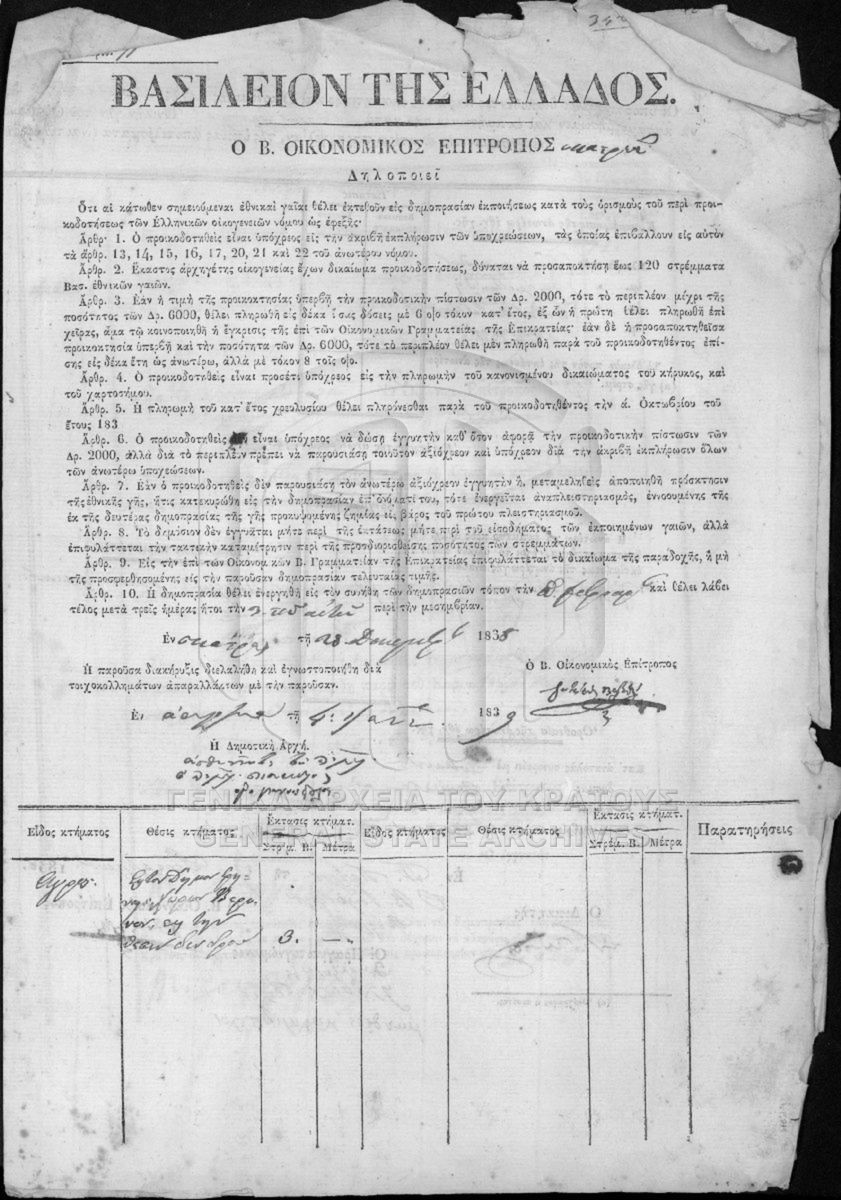 ΒΑΣΙΛΕΙΟΝ ΤΗΣ ΕΛΛΑΔΟΣ.
Ο Β. ΟΙΚΟΝΟΜΙΚΟΣ ΕΠΙΤΡΟΠΟΣ
Δηλοποιεῖ
Ὅτι αἱ κάτωθεν σημειούμεναι ἐθνικαὶ γαῖαι θέλει ἐκτεθοῦν εἰς δημοπρασίαν ἐκποιήσεως κατὰ τοὺς ὁρισμοὺς τοῦ περὶ προι-
κοδοτήσεως τῶν Ἑλληνικῶν οἰκογενειῶν νόμου ὡς ἐφεξῆς·
Ἄρθρ· 1. Ὁ προικοδοτηθεὶς εἶναι ὑπόχρεος εἰς τὴν ἀκριβῆ ἐκπλήρωσιν τῶν ὑποχρεώσεων, τὰς ὁποίας ἐπιβάλλουν εἰς αὐτὸν
τὰ ἄρθρ. 13, 14, 15, 16, 17, 20, 21 καὶ 22 τοῦ ἀνωτέρω νόμου.
Ἄρθρ. 2. Ἕκαστος ἀρχηγέτης οἰκογενείας ἔχων δικαίωμα προικοδοτήσεως, δύναται νὰ προσαποκτήσῃ ἕως 120 στρέμματα
Βασ. ἐθνικῶν γαιῶν.
Ἄρθρ. 3. Ἐὰν ἡ τιμὴ τῆς προικοκτησίας ὑπερβῇ τὴν προικοδοτικὴν πίστωσιν τῶν Δρ. 2000, τότε τὸ περιπλέον μέχρι τῆς
ποσότητος τῶν Δρ. 6000, θέλει πληρωθῆ εἰς δέκα ἴσας δόσεις μὲ 6 ο)ο τόκον κατ' ἔτος, ἐξ ὧν ἡ πρώτη θέλει πληρωθῆ ἐπὶ
χεῖρας, ἅμα τῷ κοινοποιηθῇ ἡ ἔγκρισις τῆς ἐπὶ τῶν Οἰκονομικῶν Γραμματείας τῆς Ἐπικρατείας· ἐὰν δὲ ἡ προσαποκτηθεῖσα
προικοκτησία ὑπερβῇ καὶ τὴν ποσότητα τῶν Δρ. 6000, τότε τὸ περιπλέον θέλει μὲν πληρωθῆ παρὰ τοῦ προικοδοτηθέντος ἐπί-
σης εἰς δέκα ἔτη ὡς ἀνωτέρω, ἀλλὰ μὲ τόκον 8 τοῖς ο)ο.
Ἄρθρ. 4. Ὁ προικοδοτηθεὶς εἶναι προσέτι ὑπόχρεος εἰς τὴν πληρωμὴν τοῦ κανονισμένου δικαιώματος τοῦ κήρυκος, καὶ
τοῦ χαρτοσήμου.
Ἄρθρ. 5. Ἡ πληρωμὴ τοῦ κατ' ἔτος χρεωλυσίου θέλει πληρόνεσθαι παρὰ τοῦ προικοδοτηθέντος τὴν ά. Ὀκτωβρίου τοῦ
ἔτους 183
Ἄρθρ. 6. Ὁ προικοδοτηθεὶς εἶναι ὑπόχρεος νὰ δώσῃ ἐγγυητὴν καθ' ὅσον ἀφορᾷ τὴν προικοδοτικὴν πίστωσιν τῶν
Δρ. 2000, ἀλλὰ διὰ τὸ περιπλέον πρέπει νὰ παρουσιάσῃ τοιοῦτον ἀξιόχρεον καὶ ὑπόχρεον διὰ τὴν ἀκριβῆ ἐκπλήρωσιν ὅλων
τῶν ἀνωτέρω ὑποχρεώσεων.
Ἄρθρ. 7. Ἐὰν ὁ προικοδοτηθεὶς δὲν παρουσιάσῃ τὸν ἀνωτέρω ἀξιόχρεον ἐγγυητὴν ἢ, μεταμεληθεὶς ἀποποιηθῇ πρόσκτησιν
τῆς ἐθνικῆς γῆς, ἥτις κατεκυρώθη εἰς τὴν δημοπρασίαν ἐπ' ὀνόματί του, τότε ἐνεργεῖται ἀναπλειστηριασμὸς, ἐννοουμένης τῆς
ἐκ τῆς δευτέρας δημοπρασίας τῆς γῆς προκυψομένης ζημίας εἰς βάρος τοῦ πρώτου πλειστηριασμοῦ.
Ἄρθρ. 8. Τὸ δημόσιον δὲν ἐγγυᾶται μήτε περὶ τῆς ἐκτάσεως μήτε περὶ τοῦ εἰσοδήματος τῶν ἐκποιημένων γαιῶν, ἀλλὰ
ἐπιφυλάττεται τὴν τακτικὴν καταμέτρησιν περὶ τῆς προσδιορισθείσης ποσότητος τῶν στρεμμάτων.
Ἄρθρ. 9. Εἰς τὴν ἐπὶ τῶν Οἰκονομικῶν Β. Γραμματείαν τῆς Ἐπικρατείας ἐπιφυλάττεται τὸ δικαίωμα τῆς παραδοχῆς, ἢ μὴ
τῆς προσφερθησομένης εἰς τὴν παροῦσαν δημοπρασίαν τελευταίας τιμῆς.
Ἄρθρ. 10. Ἡ δημοπρασία θέλει ἐνεργηθῆ εἰς τὸν συνήθη τῶν δημοπρασιῶν τόπον τὴν καὶ θέλει λάβει
τέλος μετὰ τρεῖς ἡμέρας ἤτοι τὴν περὶ τὴν μεσημβρίαν.
Ἐν τῇ 28 183
Ἡ παροῦσα διακήρυξις διελαλήθη καὶ ἐγνωστοποιήθη διὰ
τοιχοκολλημάτων ἀπαραλλάκτων μὲ τὴν παροῦσαν.
Ὁ Β. Οἰκονομικὸς Ἐπίτροπος
Ἐν τῇ 183 9
Ἡ Δημοτικὴ Ἀρχή.
ΓΕΝΙΚΑ ΑΡΧΕΙΑ ΤΟΥ ΚΡΑΤΟΥΣ
GENERAL STATE ARCHIVES
Εἶδος κτήματος Θέσις κτήματος Ἔκτασις κτήματ. Εἶδος κτήματος Θέσις κτήματος Ἔκτασις κτήματ. Παρατηρήσεις
Στρέμ. Β. Μέτρα Στρέμ. Β. Μέτρα
3. —